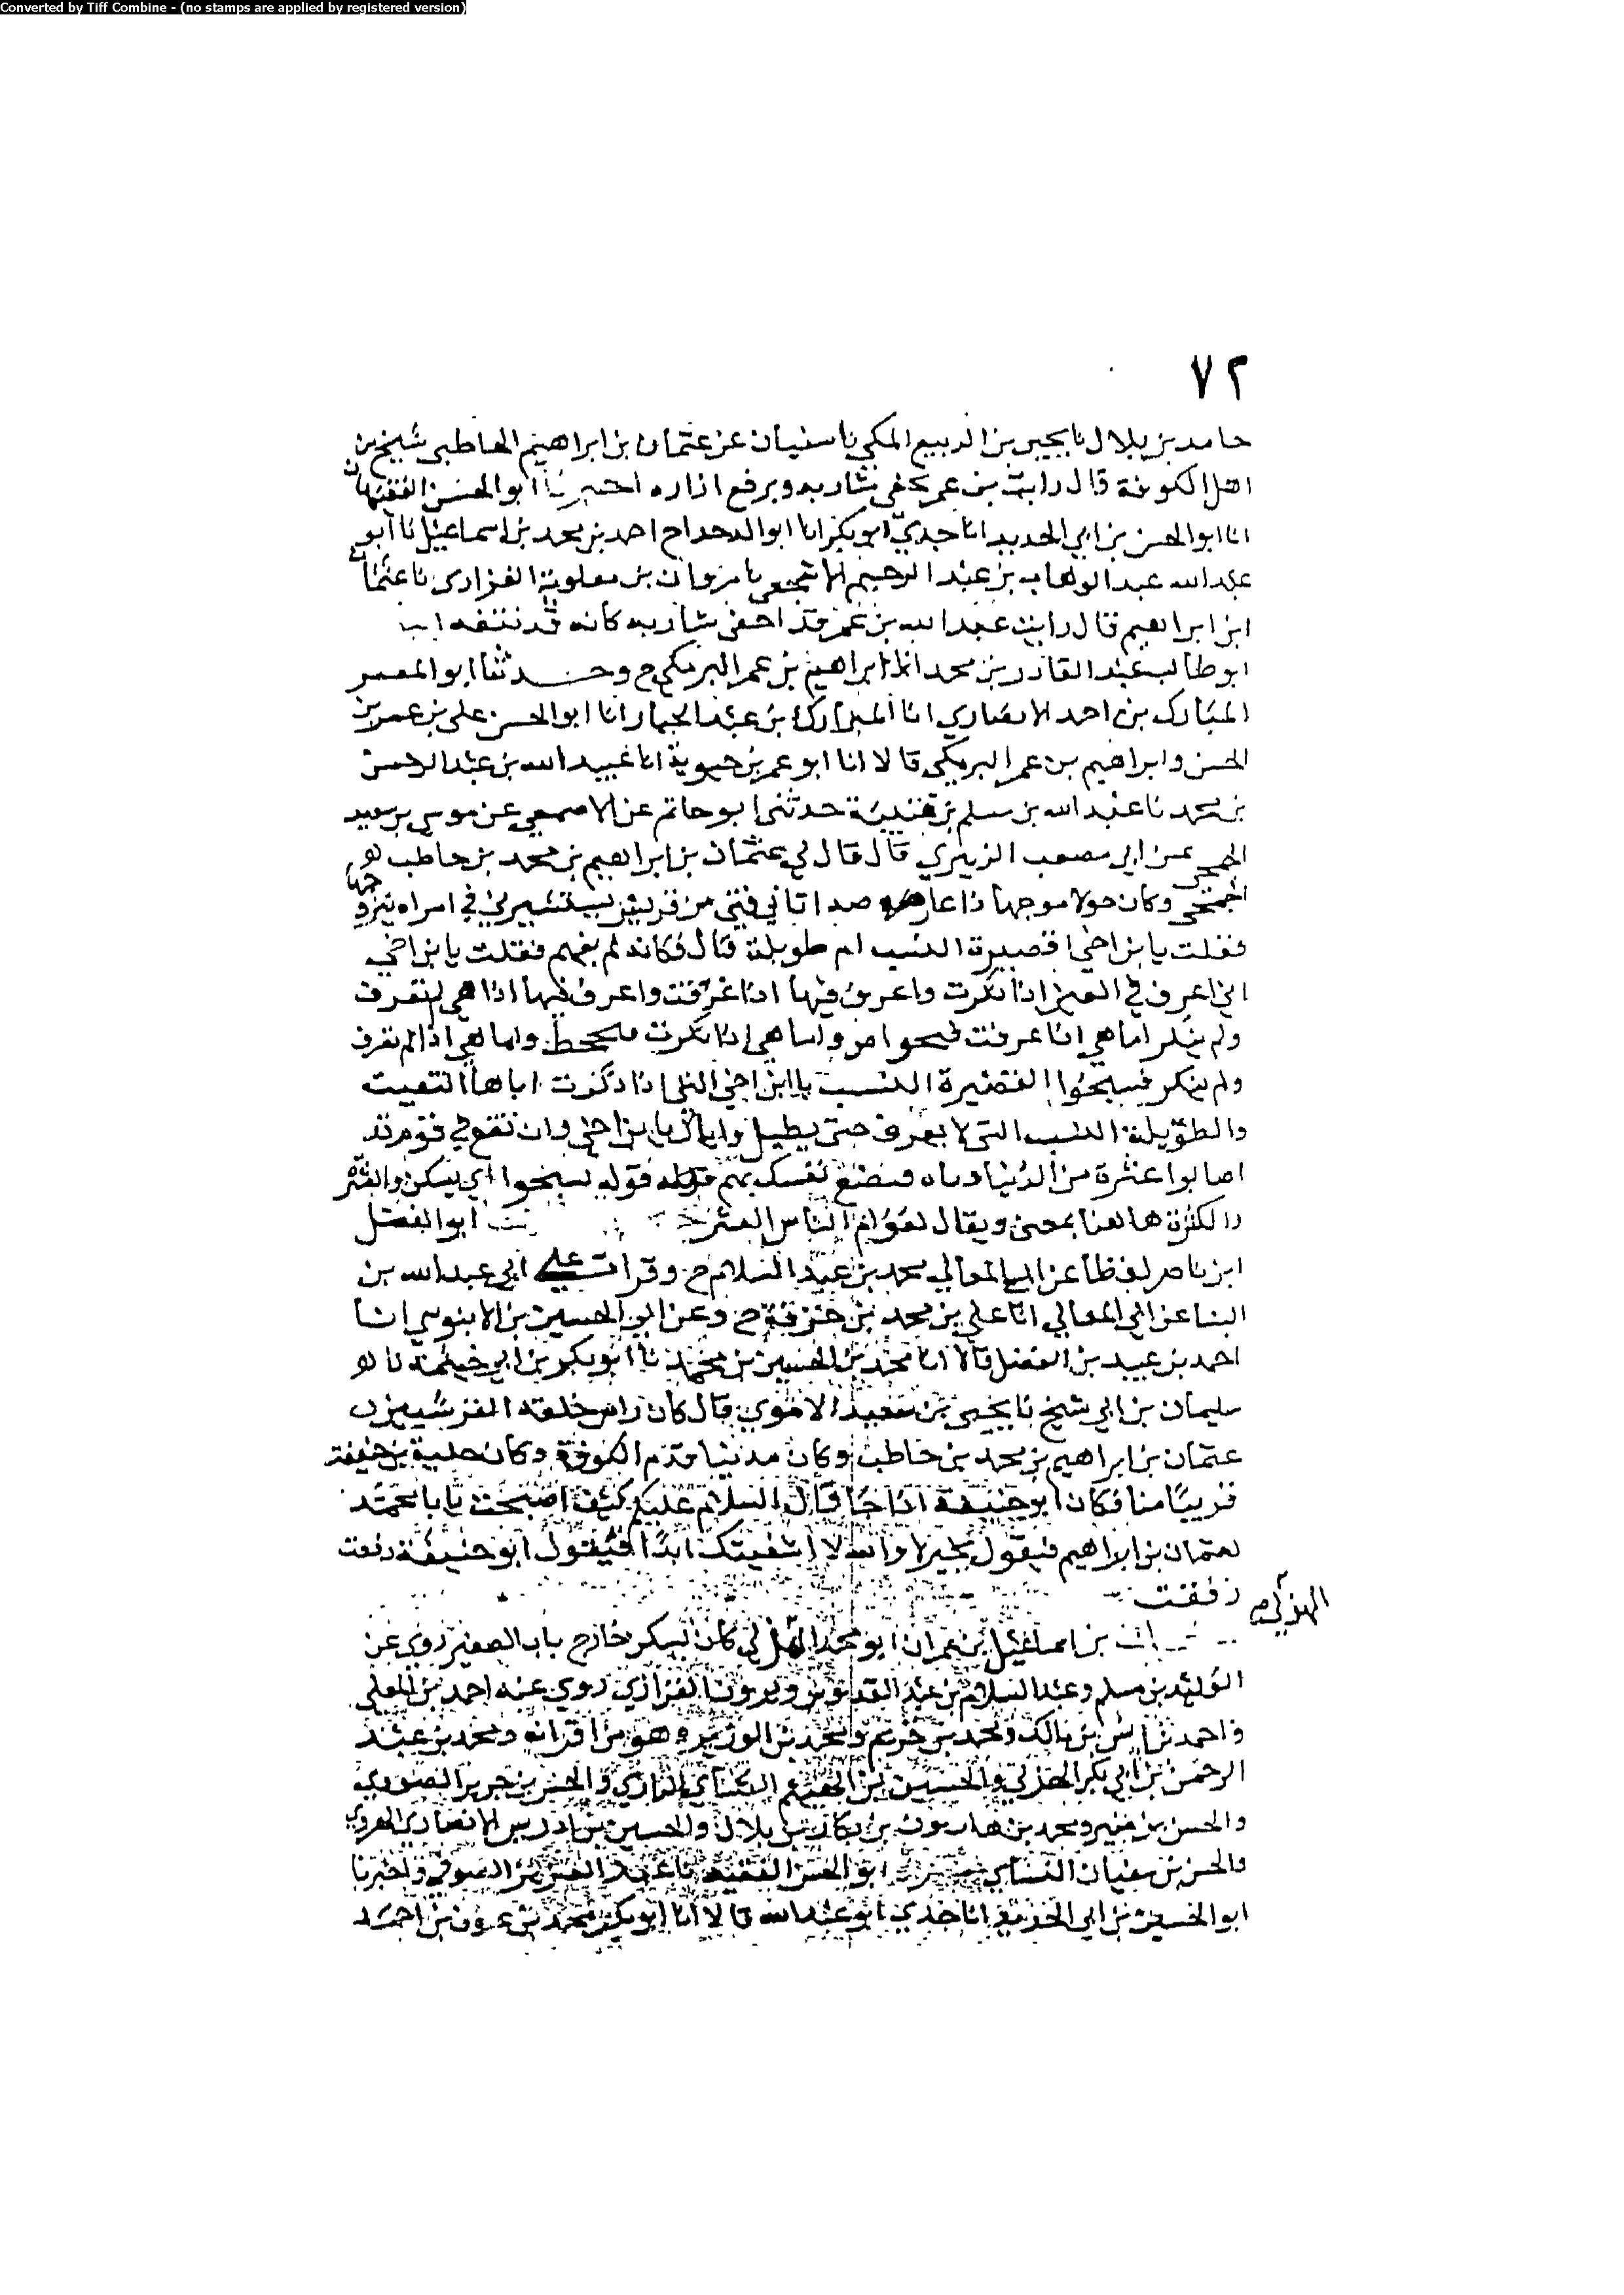 Converted by Tiff Combine - (no stamps are applied by registered version)
٧٢
حامد بن بلال نا يحيى بن الربيع المكي نا سفيان عن عثمان بن ابراهيم الحاطبي شيخ من
اهل الكوفة قال رايت بن عمر يحفي شاربه ويرفع ازاره اخبرنا ابو الحسن الفقيهان
انا ابو الحسن بن ابي الحديد انا جدي ابو بكر انا ابو الدحداح احمد بن محمد بن اسماعيل نا ابو
عبد الله عبد الوهاب بن عبد الرحيم الاشجعي نا مروان بن معاوية الفزاري نا عثمان
ابن ابراهيم قال رايت عبد الله بن عمر قد احفى شاربه كانه قد نتفه
ابو طالب عبد القادر بن محمد انا ابراهيم بن عمر البرمكي ح وحدثنا ابو المعمر
المبارك بن احمد الانصاري انا المبارك بن عبد الجبار انا ابو الحسن علي بن عمر بن
الحسن وابراهيم بن عمر البرمكي قالا انا ابو عمر بن حيوية انا عبيد الله بن عبد الرحمن
بن محمد نا عبد الله بن مسلم بن قتيبة حدثني ابو حاتم عن الاصمعي عن موسى بن سعيد
الجمحي عن ابي مصعب الزبيري قال قال لي عثمان بن ابراهيم بن محمد بن حاطب هو
الجمحي وكان حولا موجها ذا عارضه اتاني فتى من قريش يستشيرني في امراه يتزوجها
فقلت يا بن اخي اقصيرة النسب ام طويلة قال فكانه لم يفهم فقلت يا بن اخي
اني اعرف في العين اذا نكرت واعرف فيها اذا عرفت واعرف فيها اذا هي لم تعرف
ولم تنكر اما هي اذا عرفت واما هي اذا نكرت فتجحظ واما هي اذا لم تعرف
ولم تنكر فتسجوا القصيرة النسب يا ابن اخي التي اذا ذكرت اباها اكتفيت
والطويلة النسب التي لا تعرف حتى يطيل واياك يا بن اخي وان تقع في قوم قد
اصابوا عثرة من الدنيا فتضع نفسك بهم قوله تسجوا اي يسكن والعثرة
والكثرة هاهنا بمعنى ويقال لعوام الناس ابو الفضل
ابن ناصر لفظا عن ابي المعالي محمد بن عبد السلام ح وقرات علي ابي عبد الله بن
البنا عن ابي المعالي انا علي بن محمد بن خزفة ح وعن ابي الحسين بن الابنوسي انا
احمد بن عبيد بن الفضل قالا انا محمد بن الحسين بن محمد نا ابو بكر بن ابي خيثمة نا
سليمان بن ابي شيخ نا يحيى بن سعيد الاموي قال كان راس حلقة القرشيين
عثمان بن ابراهيم بن محمد بن حاطب وكان مدنيا قدم الكوفة وكان حلقة بن حنيفة
قريبا منا فكان ابو حنيفة اذا جا قال السلام عليكم كيف اصبحت يا با محمد
لعثمان بن ابراهيم فيقول بخير لا والله لا اشفيتك ابدا فيقول ابو حنيفة رفعت
رفقت
الهذلي
بن اسماعيل بن عمران ابو محمد الهذلي كان يسكن خارج باب الصغير روى عن
الوليد بن مسلم وعبد السلام بن عبد القدوس ومروان الفزاري روى عنه احمد بن المعلى
واحمد بن انس بن مالك ومحمد بن خريم ومحمد بن الوزير وهو من اقرانه ومحمد بن عبد
الرحمن بن ابي بكر الهذلي والحسين بن الهيثم الكسائي الرازي والحسن بن جرير الصوري
والحسن بن منير ومحمد بن هارون بن بكار بن بلال والحسين بن ادريس الانصاري الهروي
والحسن بن سفيان النسائي ابو الحسن الفقيه نا عبد العزيز الصوفي واخبرنا
ابو الحسين بن ابي الحديد انا جدي ابو عبد الله قالا انا ابو بكر محمد بن عوف بن احمد